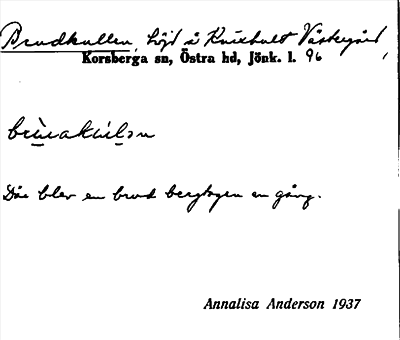 Brudkullen, höjd å Knixhult Västergård,
Korsberga sn, Östra hd, Jönk. l. 96
Där blev en brud bergtagen en gång.
Annalisa Anderson 1937